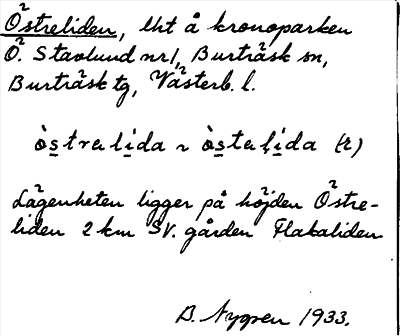 Östreliden, lht å kronoparken
Ö. Stavlund nr 1, Burträsk sn,
Burträsk tg, Västerb. l.
ò̀s̱trali̱da ~ òs̱tali̱da (r)
Lägenheten ligger på höjden Östre-
liden 2 km SV. gården Flakaliden
B. Nygren 1933.